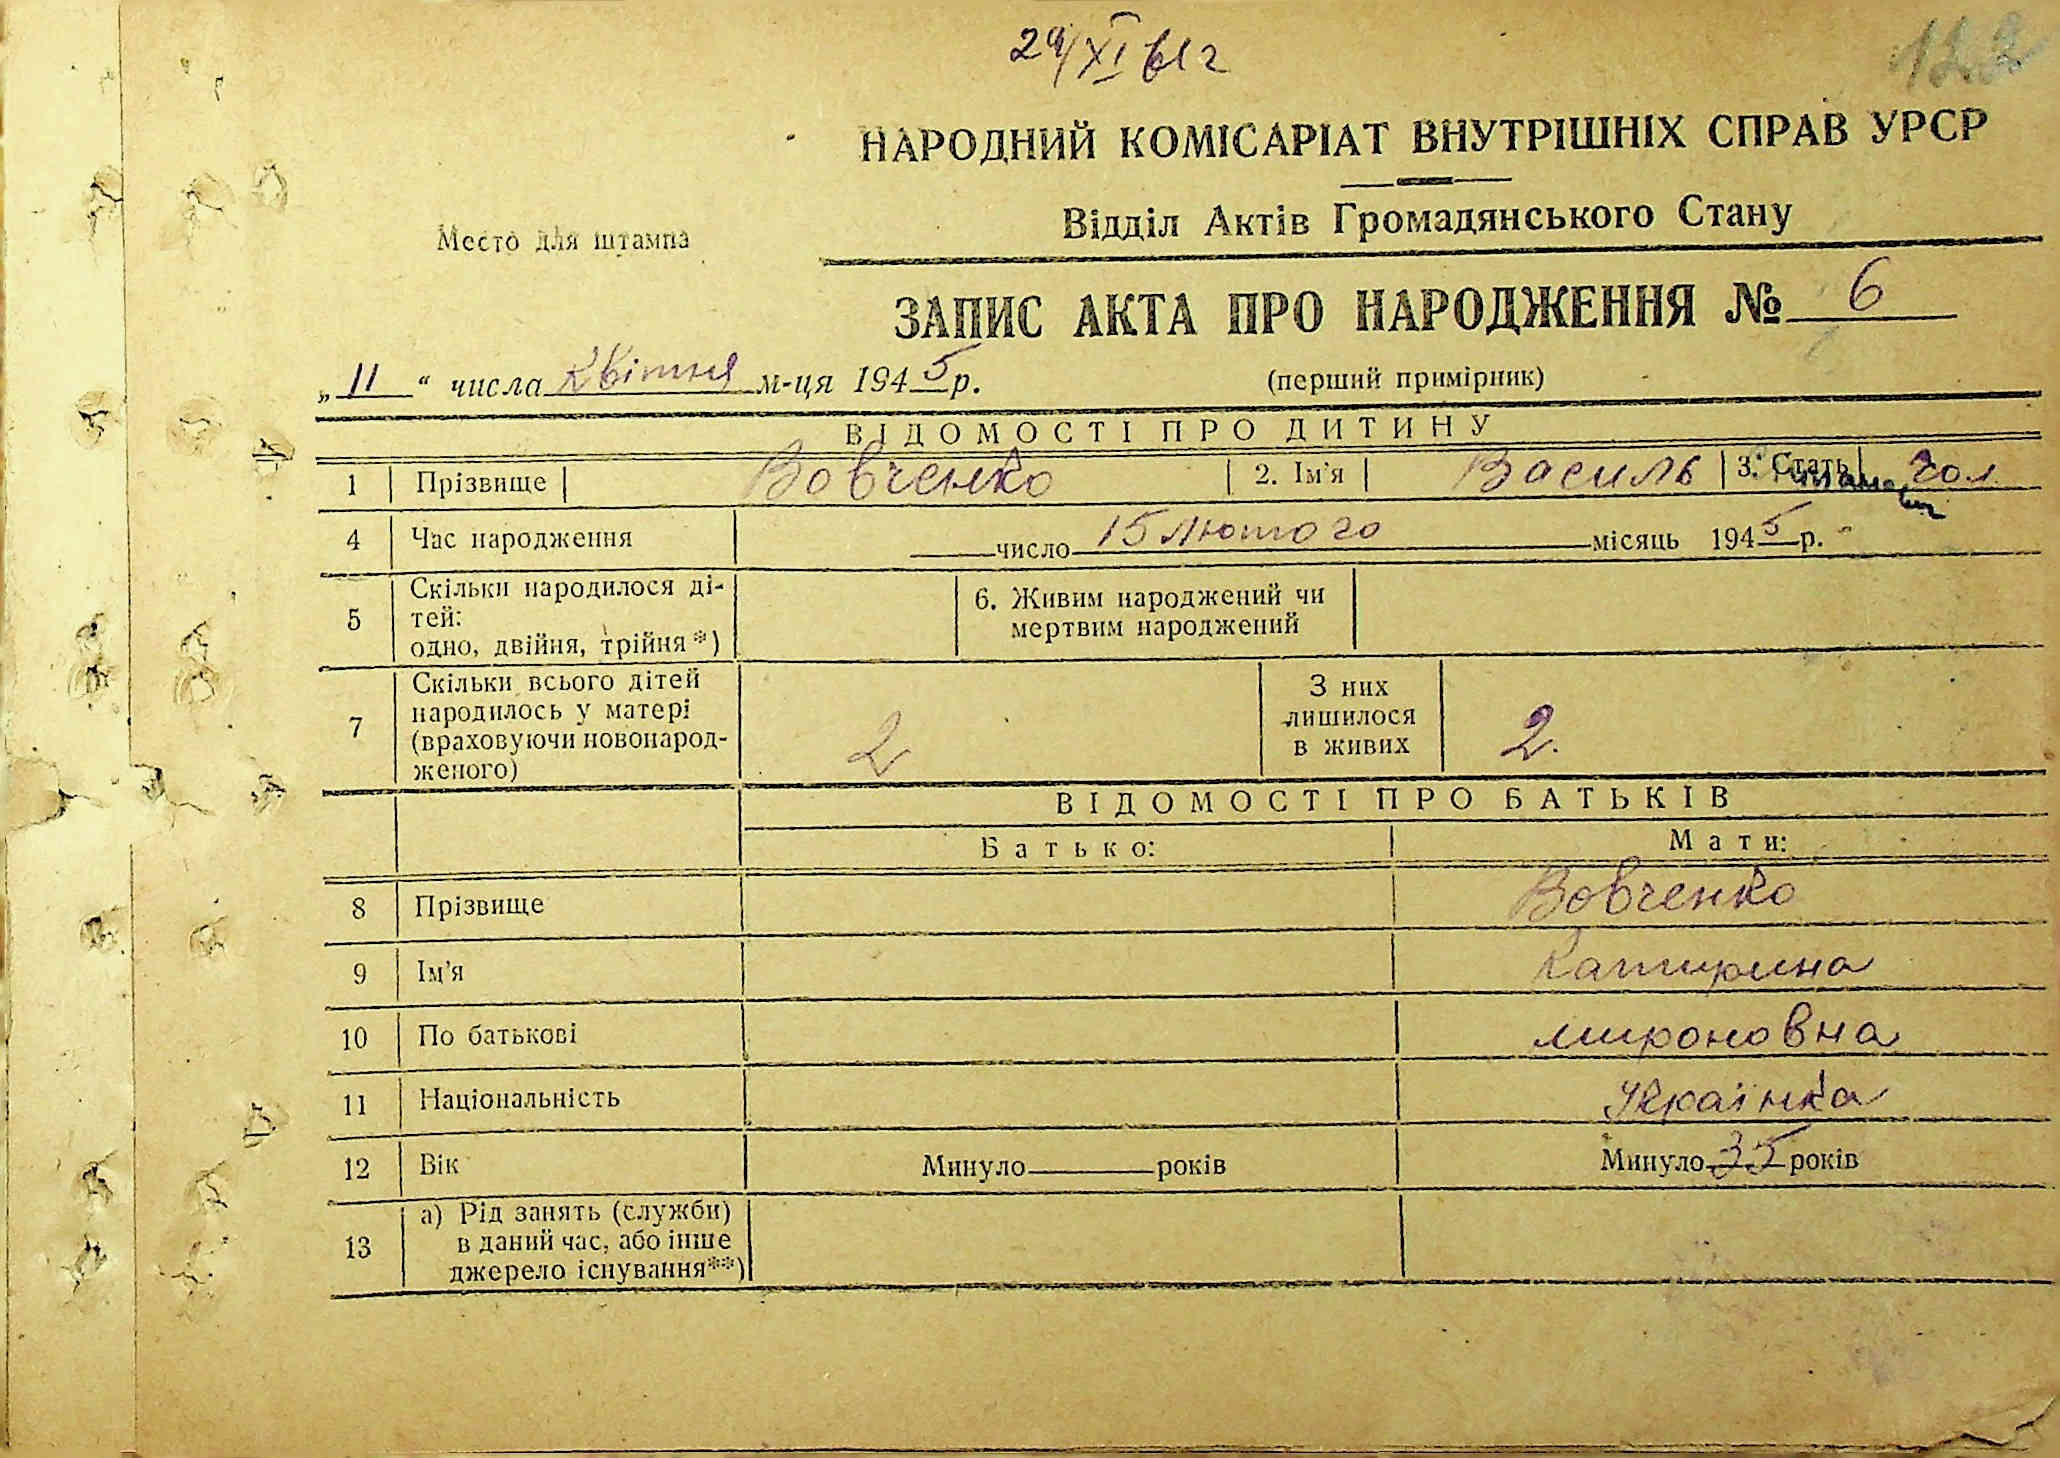 29/XI 61г
122
НАРОДНИЙ КОМІСАРІАТ ВНУТРІШНІХ СПРАВ УРСР
Место для штампа
Відділ Актів Громадянського Стану
ЗАПИС АКТА ПРО НАРОДЖЕННЯ № 6
„ 11 “ числа Квітня м-ця 1945 р. (перший примірник)
ВІДОМОСТІ ПРО ДИТИНУ
1 Прізвище Вовченко 2. Ім'я Василь 3. Стать чол
4 Час народження число 15 лютого місяць 1945 р.
5 Скільки народилося ді-
тей:
одно, двійня, трійня *)
6. Живим народжений чи
мертвим народжений
7 Скільки всього дітей
народилось у матері
(враховуючи новонарод-
женого)
2
З них
лишилося
в живих
2.
ВІДОМОСТІ ПРО БАТЬКІВ
Батько: Мати:
8 Прізвище Вовченко
9 Ім'я Катирина
10 По батькові мироновна
11 Національність Українка
12 Вік Минуло років Минуло 35 років
13 а) Рід занять (служби)
в даний час, або інше
джерело існування**)